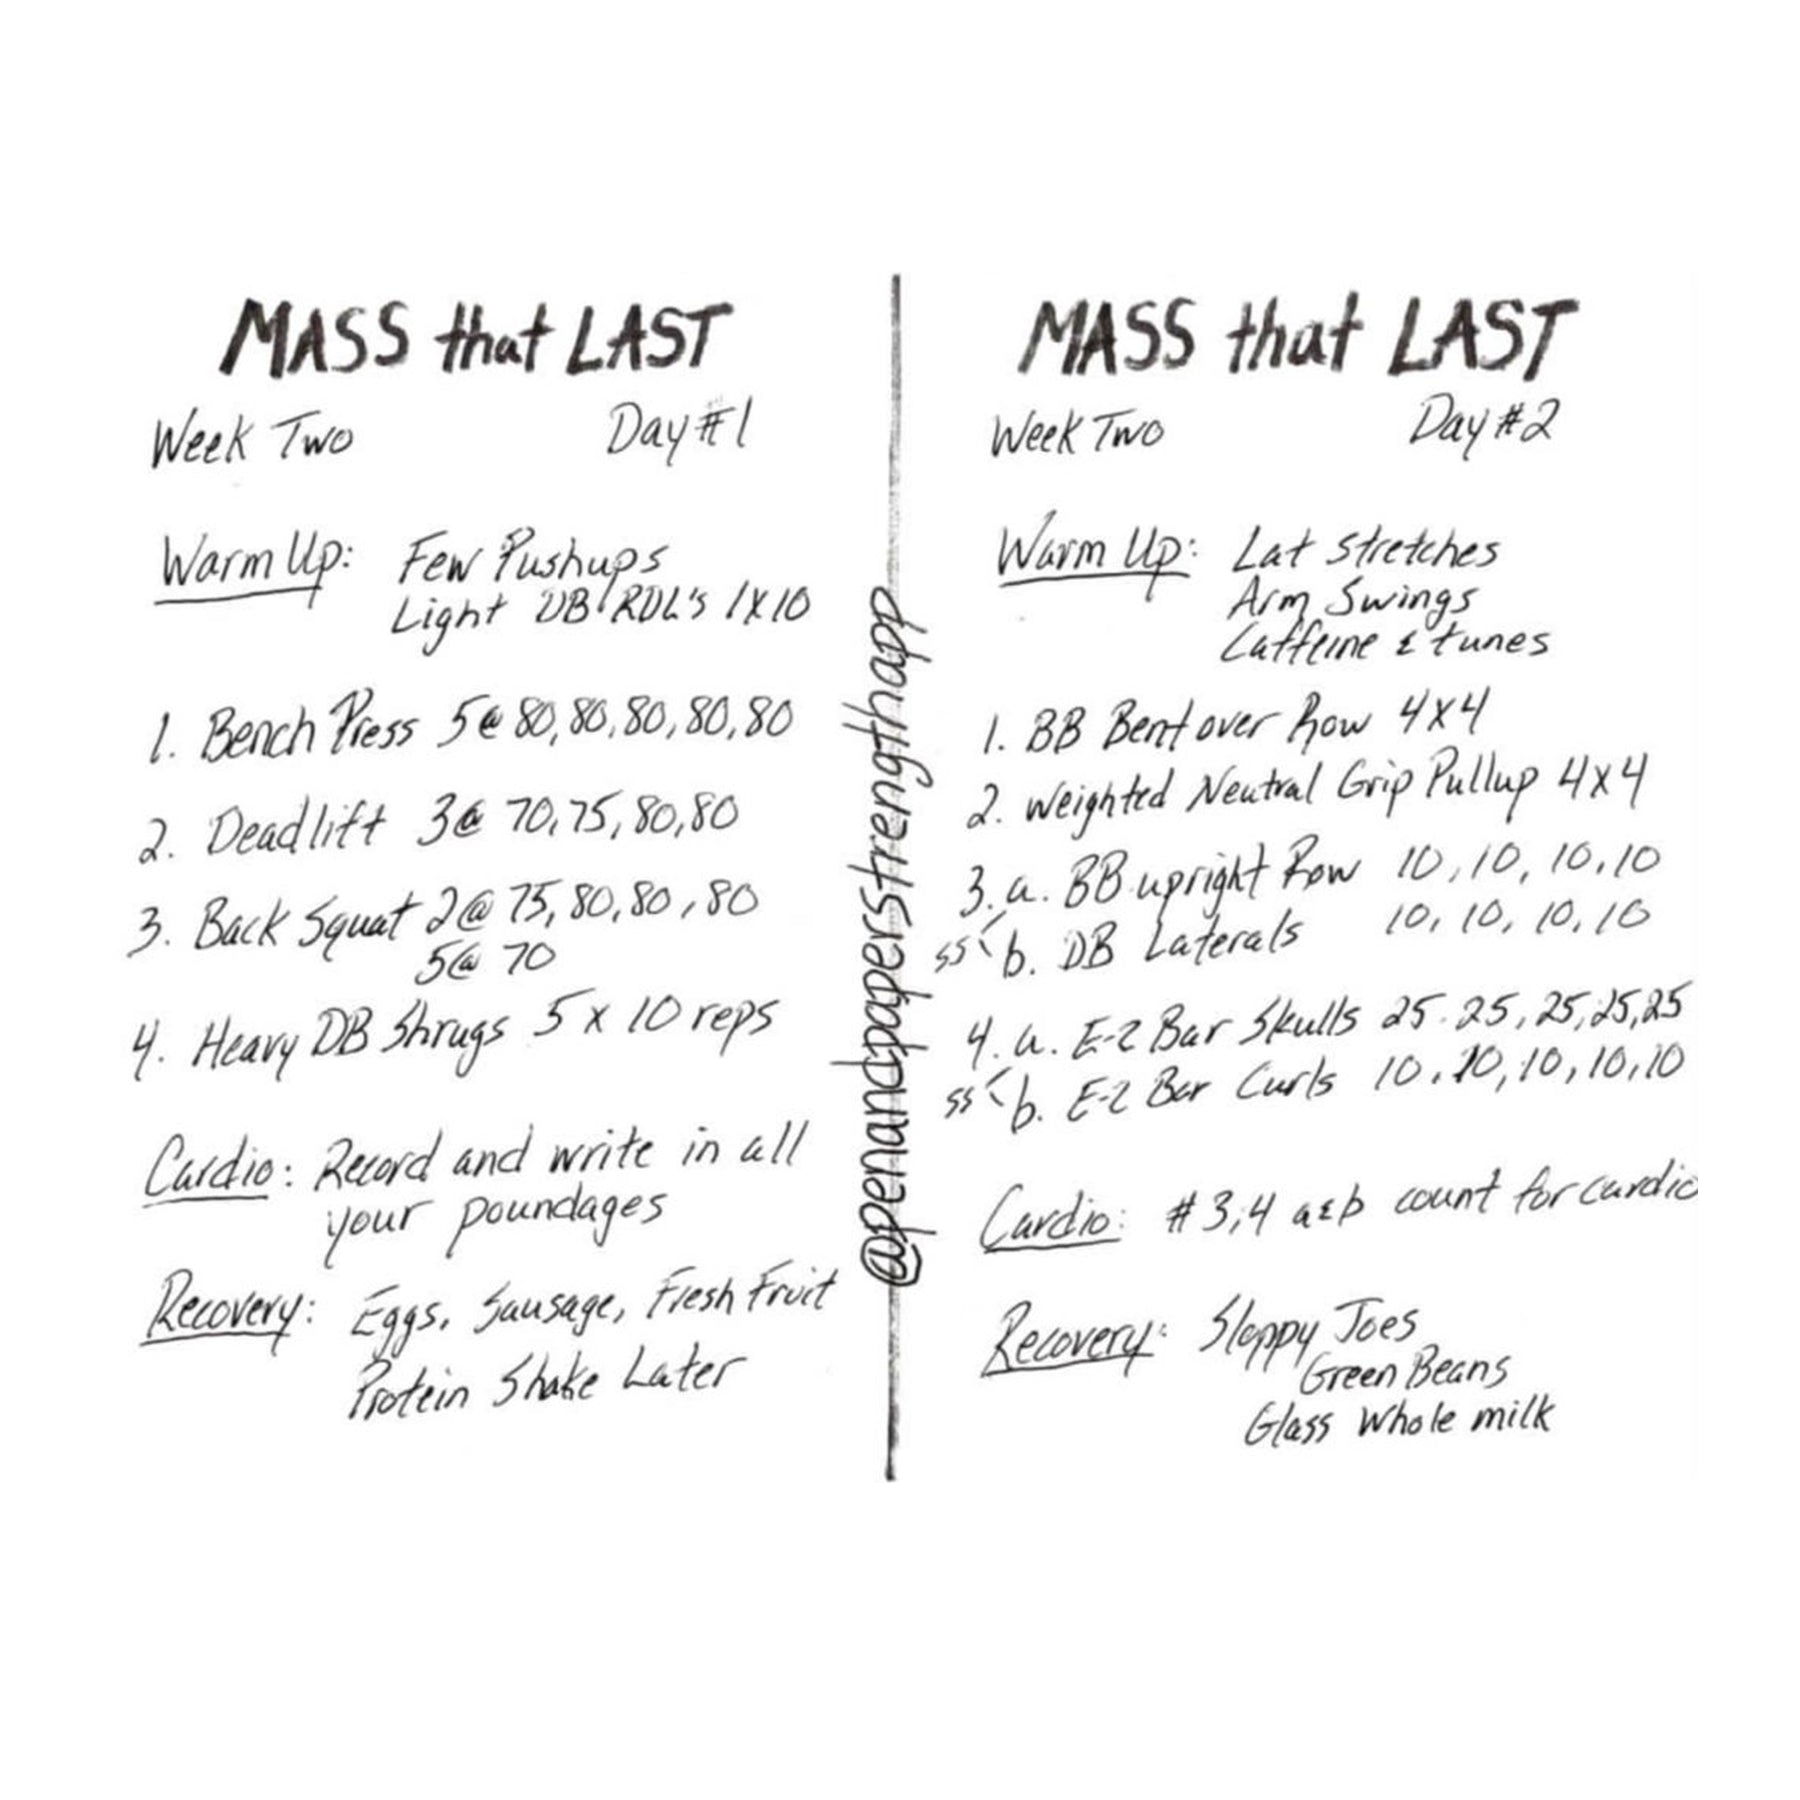 MASS that LAST
Week Two Day #1
Warm Up: Few Pushups
Light DB RDL's 1x10
1. Bench Press 5@ 80, 80, 80, 80, 80
2. Deadlift 3@ 70, 75, 80, 80
3. Back Squat 2@ 75, 80, 80, 80
5@ 70
4. Heavy DB Shrugs 5 x 10 reps
Cardio: Record and write in all
your poundages
Recovery: Eggs, Sausage, Fresh Fruit
Protein Shake Later
@penandpaperstrengthapp
MASS that LAST
Week Two Day #2
Warm Up: Lat Stretches
Arm Swings
Caffeine & tunes
1. BB Bent over Row 4x4
2. Weighted Neutral Grip Pullup 4x4
3. a. BB upright Row 10, 10, 10, 10
ss b. DB Laterals 10, 10, 10, 10
4. a. E-Z Bar Skulls 25. 25, 25, 25, 25
ss b. E-Z Bar Curls 10, 10, 10, 10, 10
Cardio: # 3,4 a&b count for cardio
Recovery: Sloppy Joes
Green Beans
Glass Whole milk